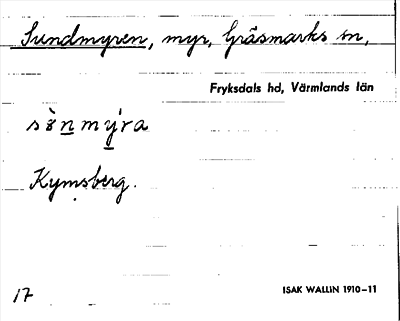 Sundmyren, myr, Gräsmarks sn,
Fryksdals hd, Värmlands län
sȍnmy̍ra
Kymsberg.
17
ISAK WALLIN 1910–11